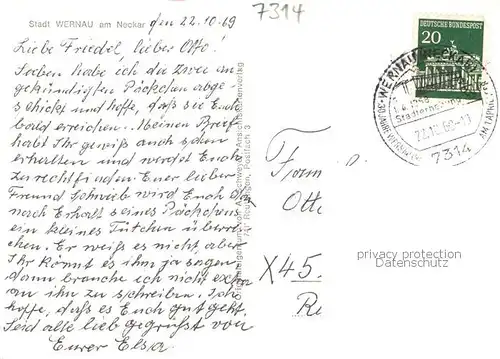 Stadt WERNAU am Neckar den 22.10.69
7314
Liebe Friedel, lieber Otto!
Soeben habe ich die zwei an
gekündigten Päckchen abge-
schickt und hoffe, daß sie Euch
bald erreichen. Meinen Brief
habt Ihr gewiß auch schon
erhalten und werdet Euch
zurechtfinden. Euer lieber
Freund Schwieb wird Euch
nach Erhalt seines Päckchens
ein kleines Tütchen überrei-
chen. Er weiß es nicht aber
Ihr könnt es ihm ja sagen,
dann brauche ich nicht extra
an ihn zu schreiben. Ich
hoffe, daß es Euch gut geht.
Seid alle lieb gegrüßt von
Eurer Elsa
Ansichtskartenverlag
741 Reutlingen, Postfach 3
DEUTSCHE BUNDESPOST
20
WERNAU
Stadterhebung
22.10.69-17
7314
Fam
Otto
X45
privacy protection
Datenschutz